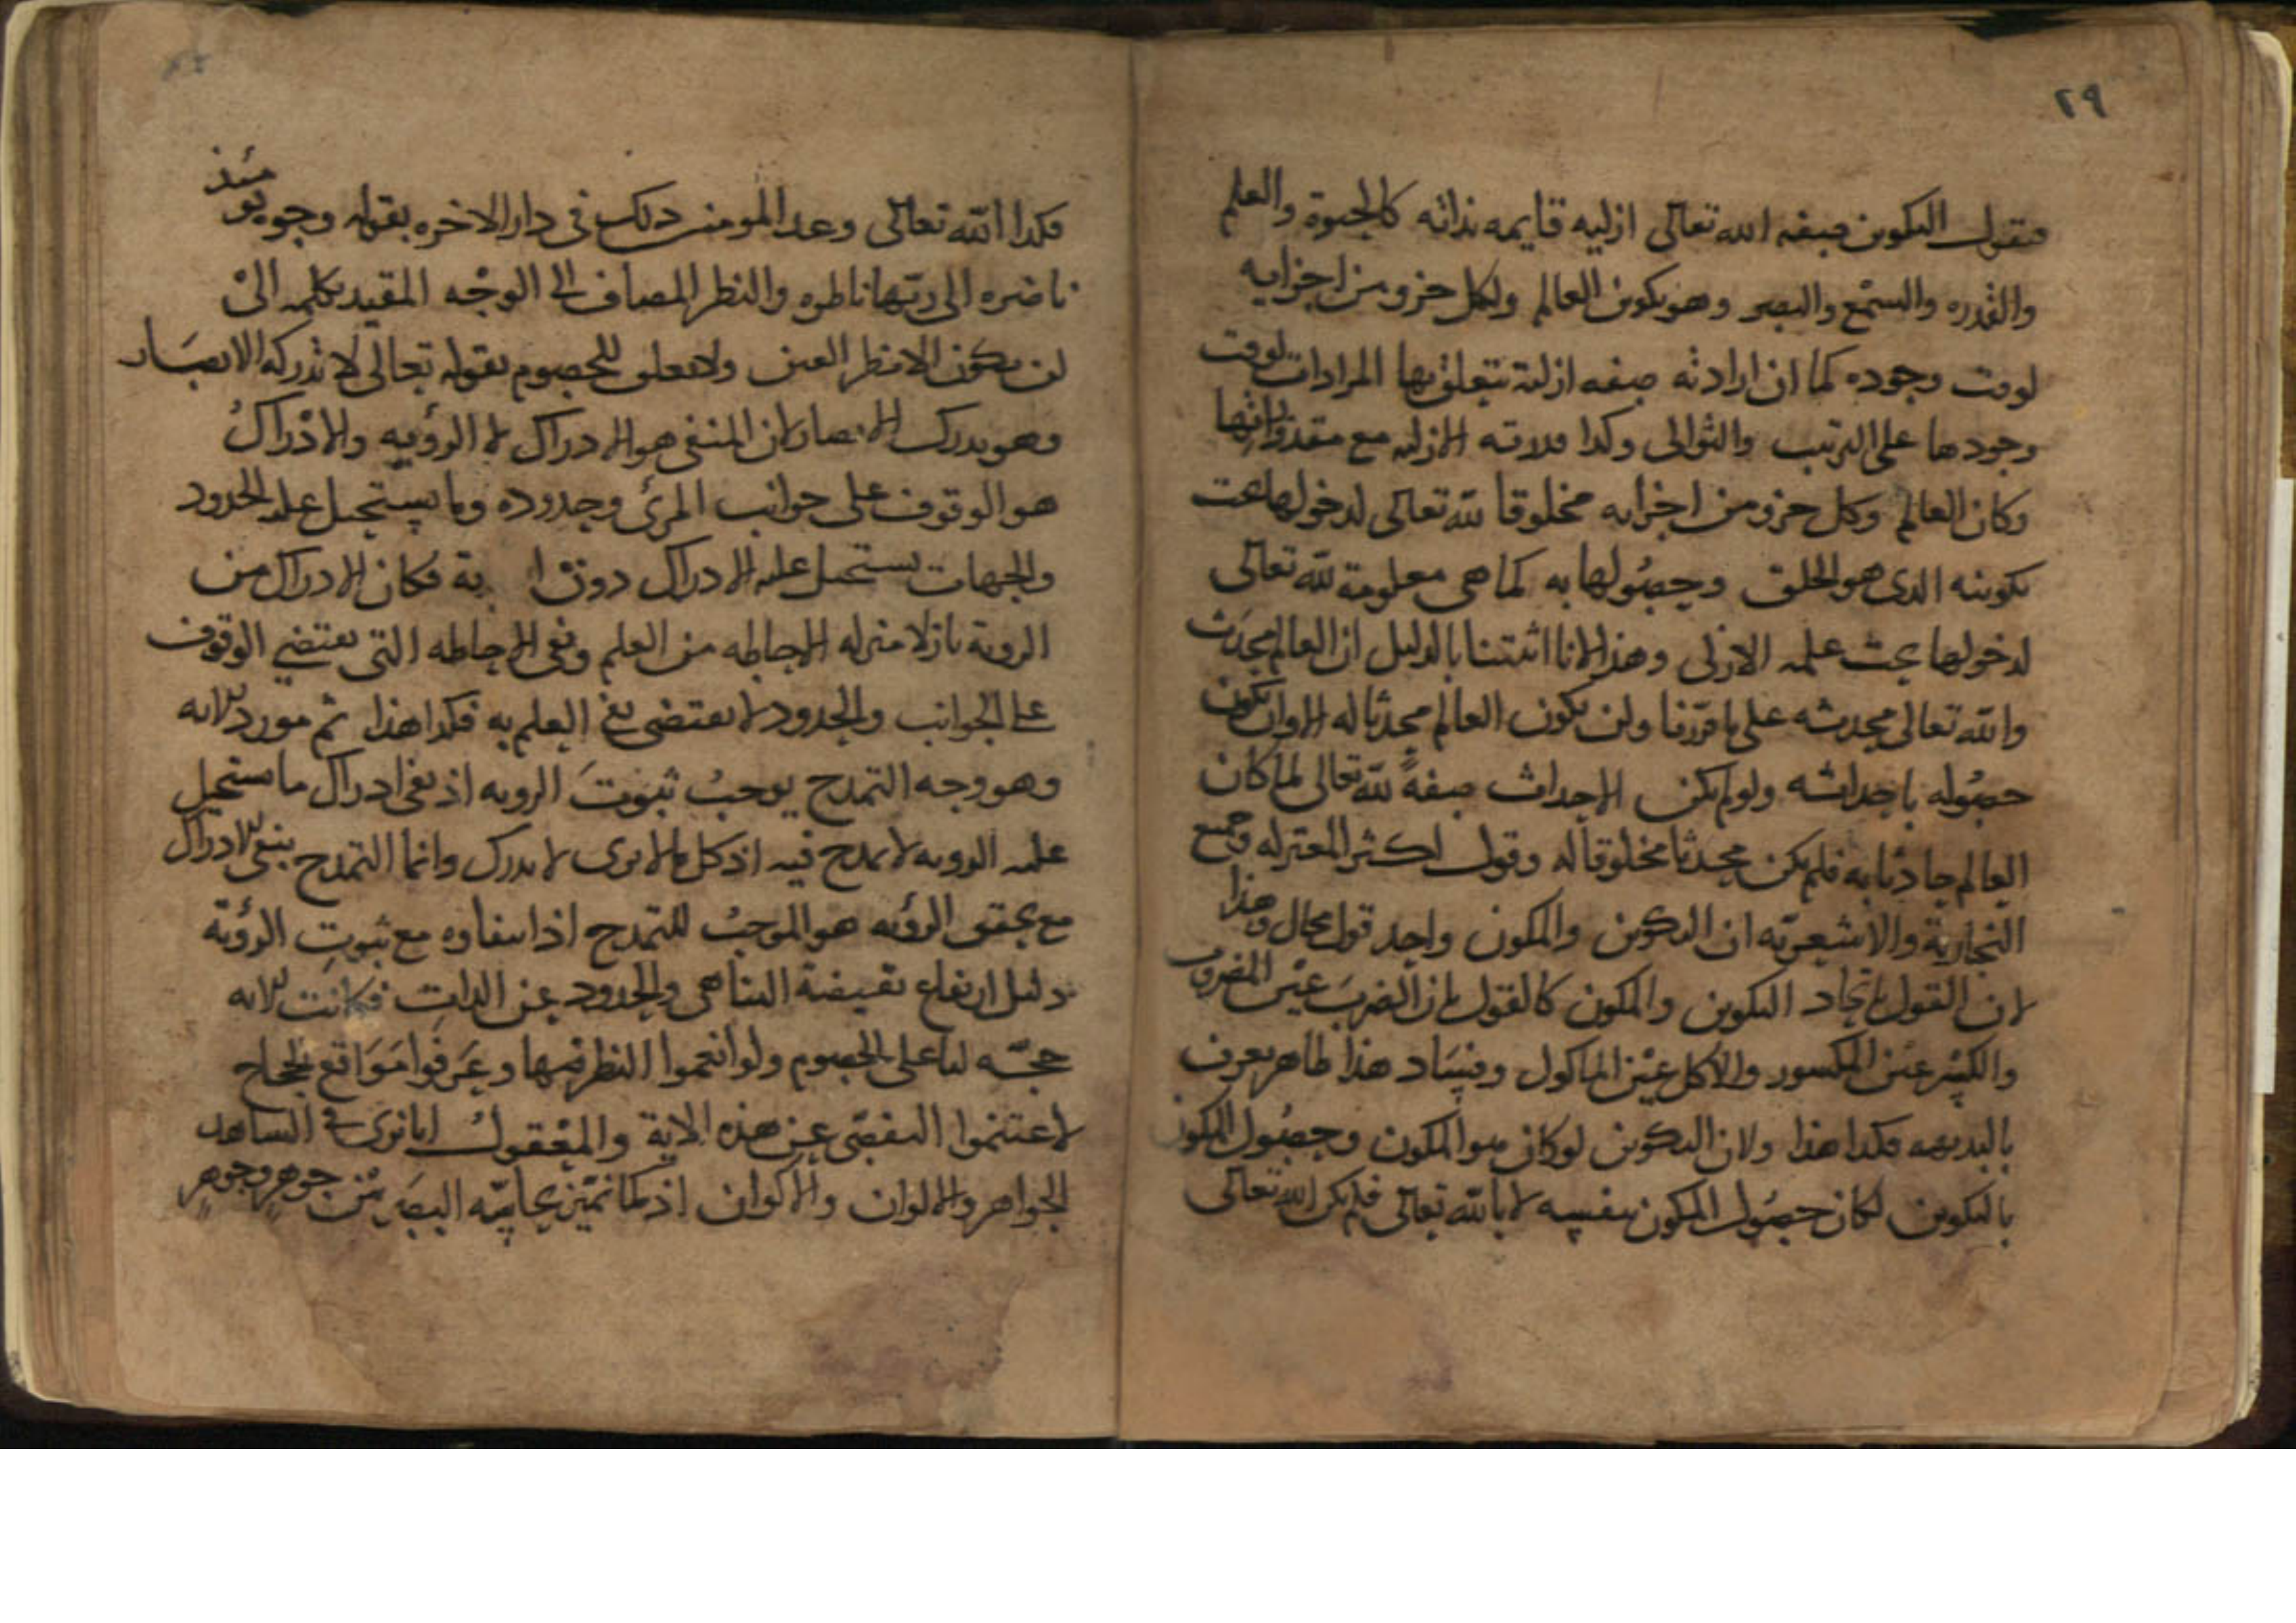 ٢٩
فنقول التكوين صفه الله تعالى ازليه قايمه بذاته كالحيوة والعلم
والقدره والسمع والبصر وهو تكوين العالم ولكل جزو من اجزايه
لوقت وجوده كما ان ارادته صفه ازلية تتعلق بها المرادات لوقت
وجودها على الترتيب والتوالى وكذا قدرته الازليه مع مقدوراتها
وكان العالم وكل جزو من اجزايه مخلوقا لله تعالى لدخولها تحت
تكوينه الذى هو الخلق وحصولها به كما هى معلومة لله تعالى
لدخولها تحت علمه الازلى وهذا لانا اثبتنا بالدليل ان العالم محدث
والله تعالى محدثه على ما قررنا ولن يكون العالم محدثا له الا وان يكون
حصوله باحداثه ولو لم يكن الاحداث صفةً لله تعالى لما كان
العالم حادثا به فلم يكن محدثا مخلوقا له وقول اكثر المعتزله وجميع
النجارية والاشعريّه ان التكوين والمكون واحد قول محال وهذا
لان القول باتحاد التكوين والمكون كالقول بان الضربَ عين المضروب
والكسر عين المكسور والاكل عين الماكول وفساد هذا ظاهر يعرف
بالبديهه فكذا هذا ولان التكوين لو كان هو المكون وحصول المكون
بالتكوين لكان حصول المكون بنفسه لا بالله تعالى فلم يكن الله تعالى
فكذا الله تعالى وعد المومنين ذلك فى دار الاخره بقوله وجوه يومئذ
ناضره الى ربّها ناظره والنظر المضاف الى الوجْه المقيد بكلمه الىْ
لن يكون الا نظر العين ولا تعلق للخصوم بقوله تعالى لا تدركه الابصَار
وهو يدرك الابصار لان المنفى هو الادراك لا الرؤيه والادْراكُ
هو الوقوف على جوانب المرئ وحدوده وما يستحيل عليه الحدود
والجهات يستحيل عليه الادراك دون ا ية فكان الادراك من
الروية نازلا منزله الاحاطه من العلم ونفى الاحاطه التى تقتضى الوقوف
على الجوانب والحدود لا يقتضى نفى العلم به فكذا هذا ثم مورد الايه
وهو وجه التمدح يوجبُ ثبوتَ الرويه اذ نفى ادراك ما يستحيل
عليه الرويه لا تمدح فيه اذ كل ما لا يرى لا يدرك وانما التمدح بنفى الادراك
مع تحقق الرؤيه هو الموجبُ للتمدح اذ انتفاوه مع ثبوتِ الرؤية
دليل ارتفاع نقيصة التناهى والحدود عن الذات فكانت الايه
حجّه لنا على الخصوم ولو انعموا النظر فيها وعَرفوا مَوَاقع الحجاج
لاغتنموا التفصّى عن هذه الاية والمعْقولُ انا نرى فى الشاهد
الجواهر والالوان والاكوان اذ كما نميّز بحاسّه البصَر بَيْن جوهرٍ وجوهرٍ